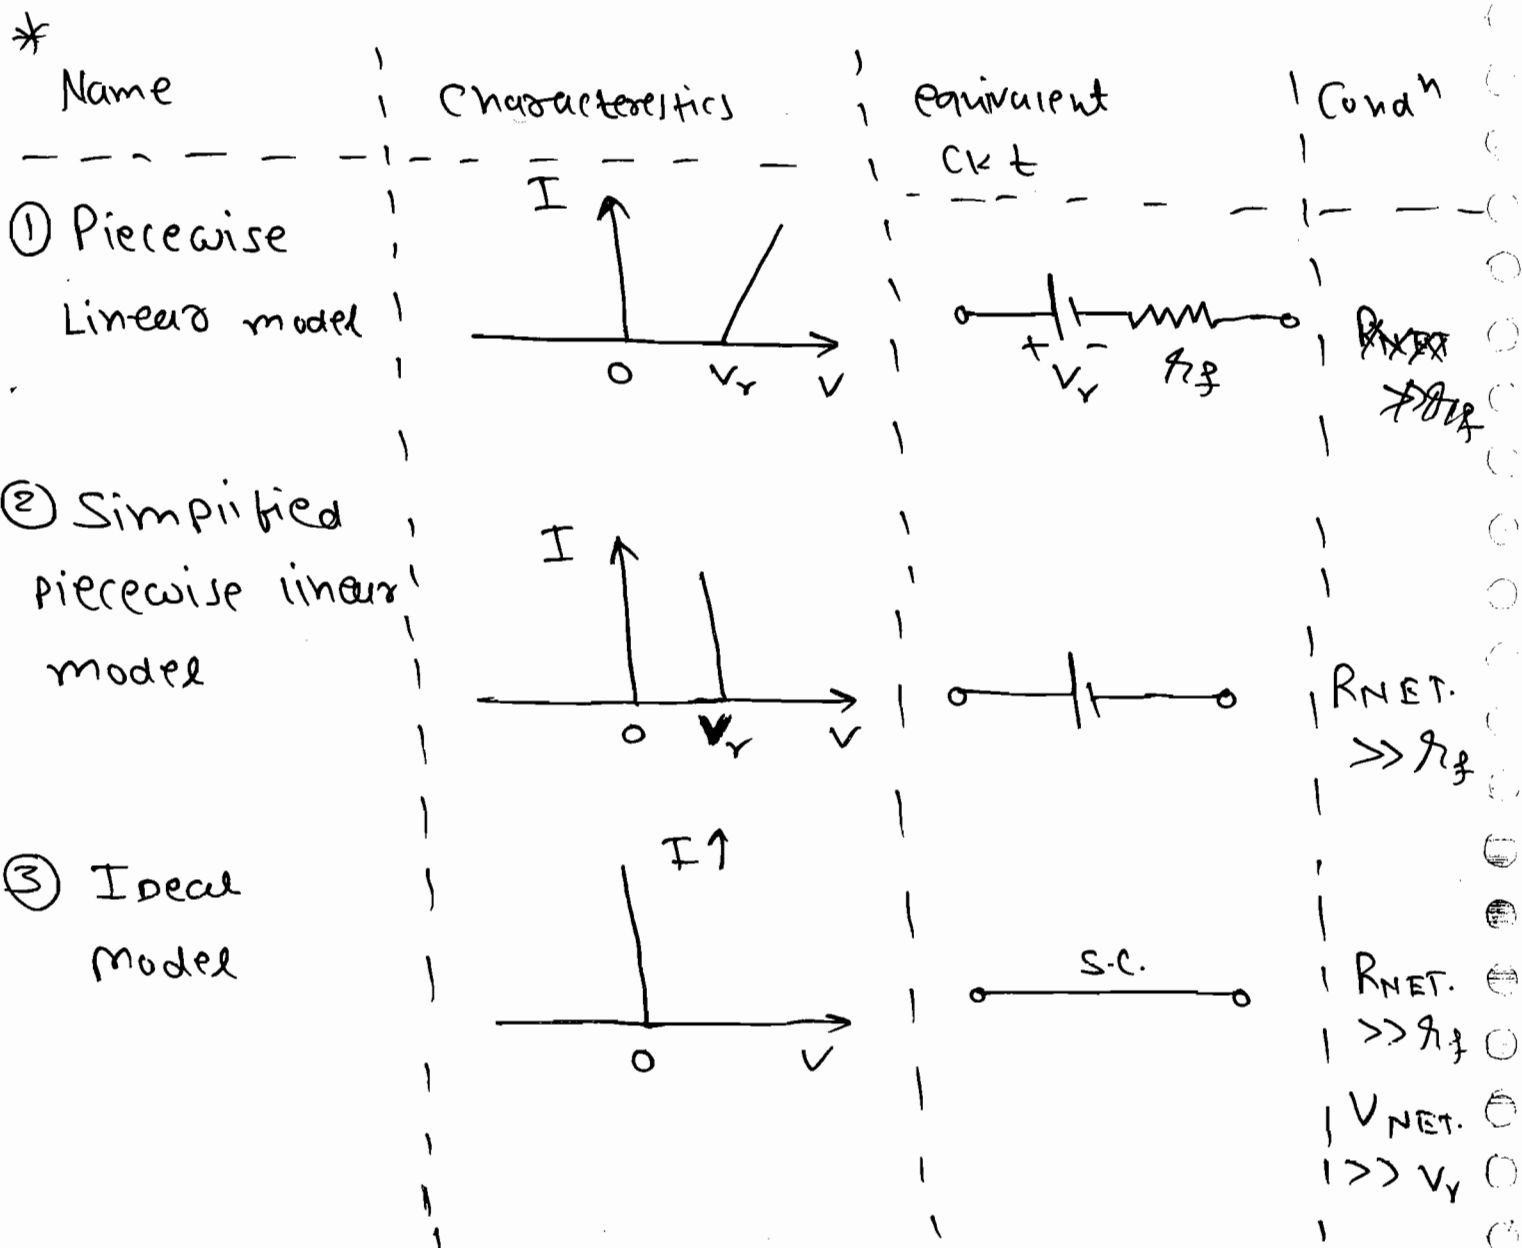 *
Name Characterestics equivalent Condⁿ
ckt
① Piecewise
Linear model
I
0 Vγ V
+ -
Vγ rf
② Simplified
piecewise linear
model
I
0 Vγ V
RNET.
>> rf
③ Ideal
Model
I↑
0 V
S.C.
RNET.
>> rf
VNET.
>> Vγ